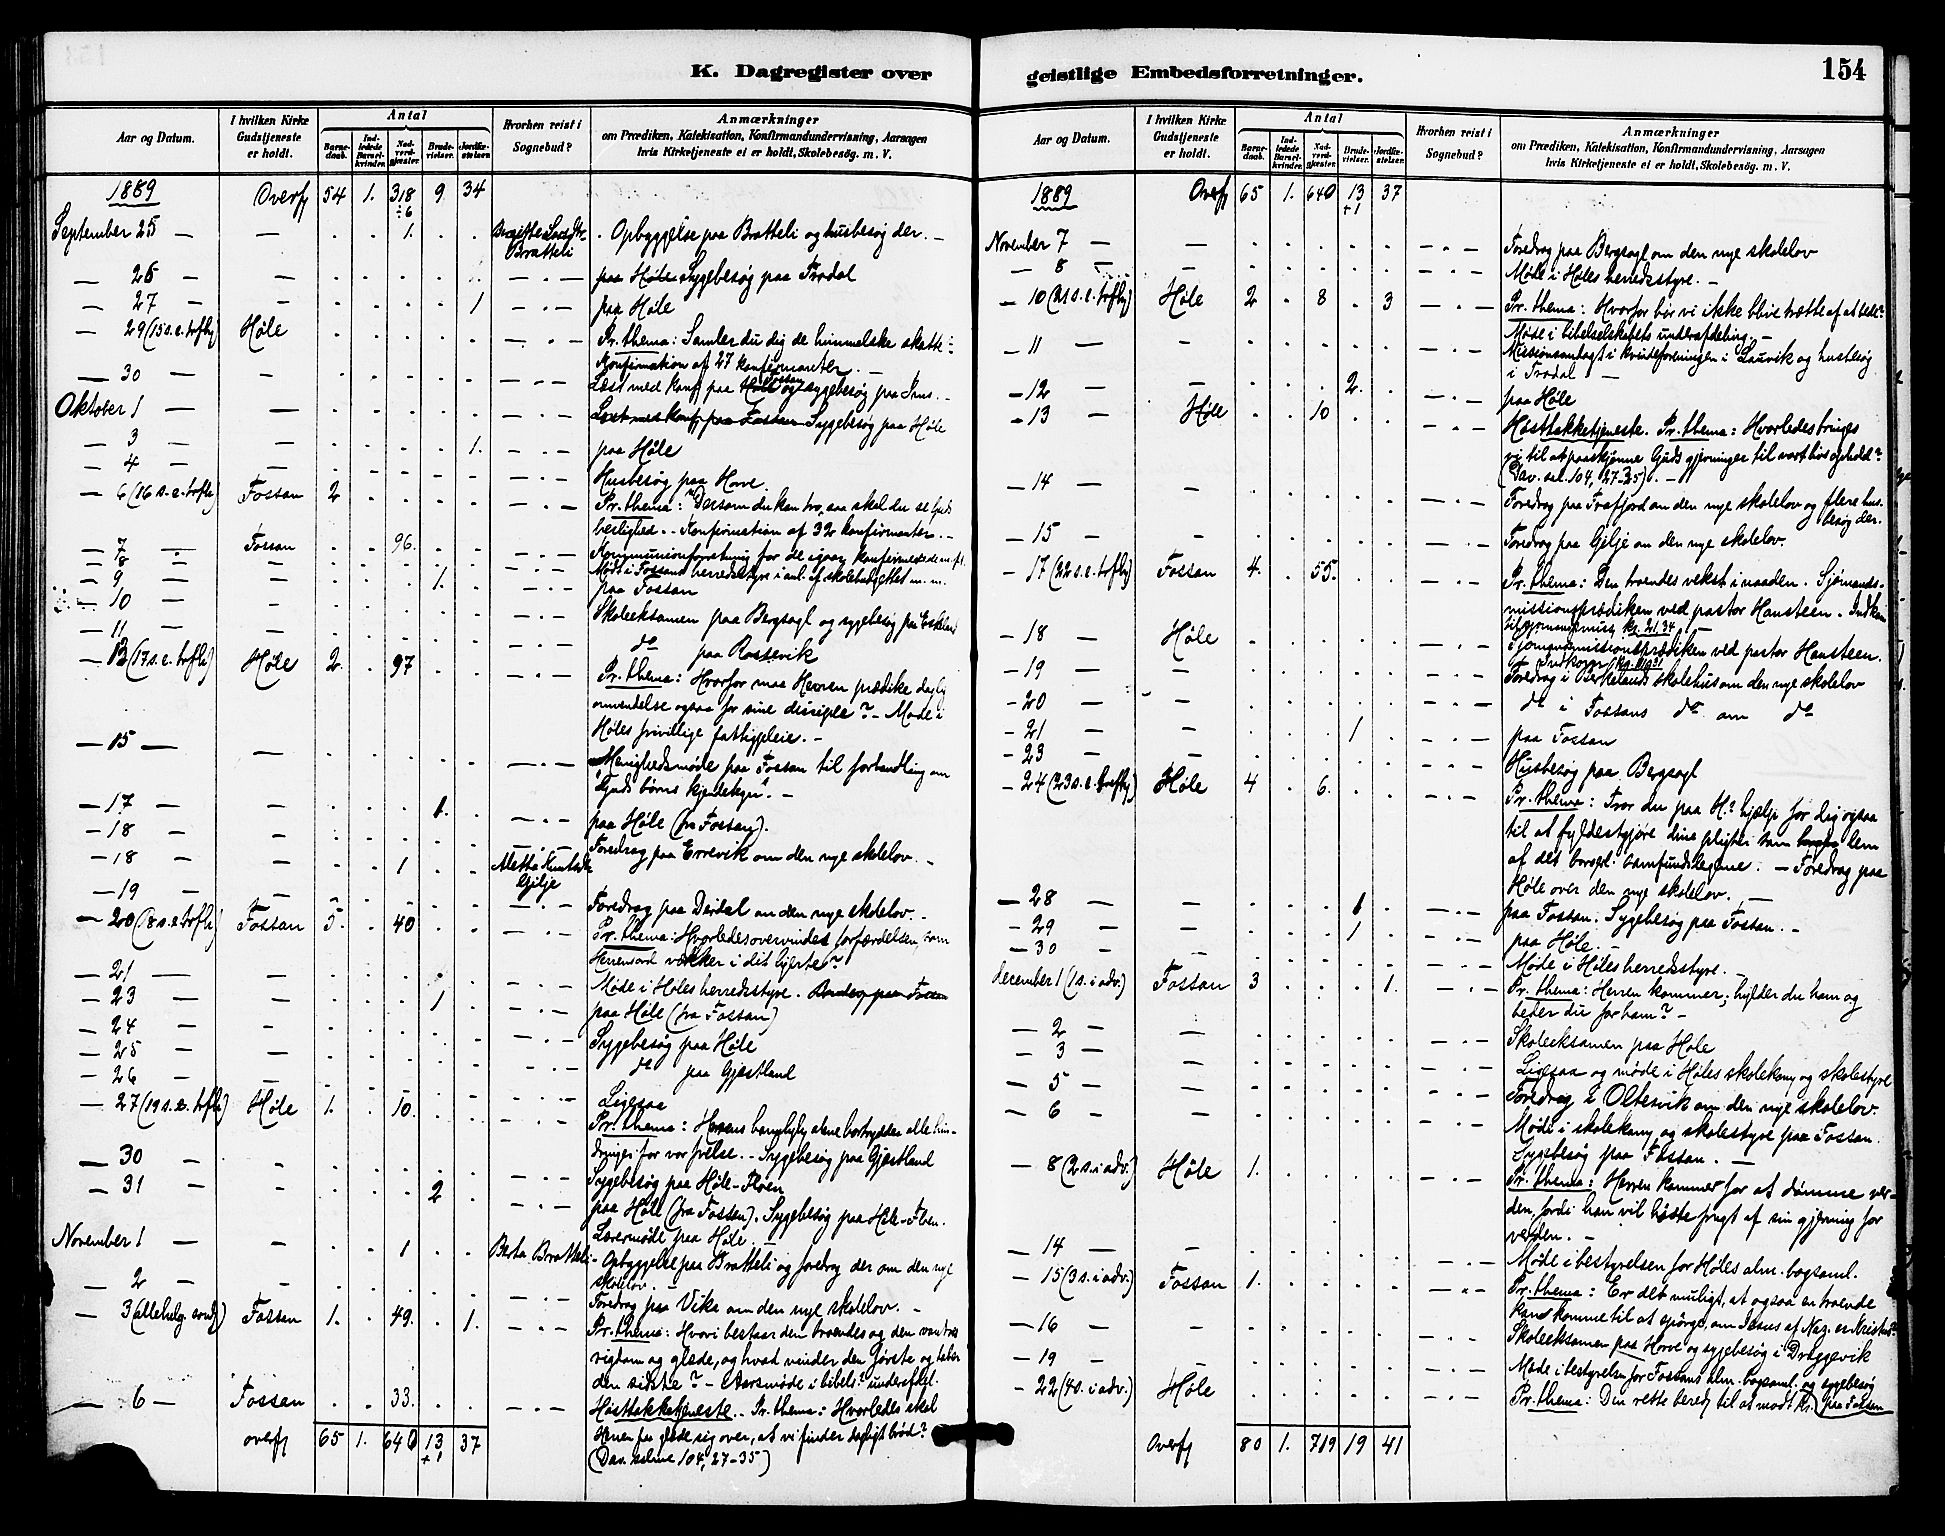 K. Dagregister over
Aar og Datum.
I hvilken Kirke Gudstjeneste er holdt.
Antal
Barnedaab.
Indledede Barselkvinder.
Nadverdgjester.
Brudevielser.
Jordfæstelser.
Hvorhen reist i Sognebud?
Anmærkninger
om Prædiken, Katekisation, Konfirmandundervisning, Aarsagen
hvis Kirketjeneste ei er holdt, Skolebesög. m. V.
1889 Overf 54 1. 318 9 34
÷6
September 25 — — 1. Bratteli . Opbyggelse paa Bratteli og husbesøg der. —
— 26 — paa Høle Sygebesøg paa Frodal
— 27 — 1 paa Høle
— 29 (15 s. e. trefh) Høle Pr. thema: Samler du dig de himmelske skatte?
Konfirmation af 27 konfirmanter. —
— 30 — Læst med konf paa Fossan og sygebesøg paa Ims. —
Oktober 1 — Læst med konf paa Fossan Sygebesøg paa Høle
— 3 — 1. paa Høle
— 4 — Husbesøg paa Horve
— 6 (16 s. e. trefh) Fossan 2 Pr. thema: Dersom du kan tro, saa skal du se Guds
herlighed. - Konfirmation af 32 konfirmanter. —
— 7 — Fossan 96. Kommunionforretning for de igaar konfirmerede m. fl.
— 8 — Møde i Fossans herredsstyre i anl. af skolebudgettet m. m.
— 9 — 1. paa Fossan
— 10 — Skoleeksamen paa Bergsagl og sygebesøg paa Eskeland
— 11 — do paa Rossevik
— 13 (17 s. e. trefh) Høle 2 97 Pr. thema: Hvorfor maa Herren prædike daglig
omvendelse ogsaa for sine disciple? - Møde i
Høles frivillige fattigpleie. —
— 15 — Menighedsmøde paa Fossan til forhandling om
"Guds børns kjendetegn". —
— 17 — 1. paa Høle (fra Fossan).
— 18 — Foredrag paa Errevik om den nye skolelov. —
— 18 — 1 Aletta Knutsdr Gilje
— 19 — Foredrag paa Dirdal om den nye skolelov. —
— 20 (18 s. e. trefh) Fossan 5. 40 Pr. thema: Hvorledes overvindes forfærdelsen, som
Herrens ord vækker i dit hjerte?
— 21 — Møde i Høles herredsstyre.
— 23 — 1 paa Høle (fra Fossan)
— 24 — Sygebesøg paa Høle
— 25 — do paa Gjestland
— 26 — Ligesaa
— 27 (19 s. e. trefh) Høle 1. 10. Pr. thema: Herrens alene bortrydder alle hin-
dringer for vor frelse. - Sygebesøg paa Gjestland
— 30 — Sygebesøg paa Høle-Floen
— 31 — 2 paa Høle (fra Fossan). Sygebesøg paa Høle-Floen.
Lærermøde paa Høle. —
November 1 — 1 Berta Bratteli - Opbyggelse paa Bratteli og foredrag der om den nye
skolelov. —
— 2 — Foredrag paa Vika om den nye skolelov. —
— 3 (allehelg. søndg) Fossan 1. 49. 1. Pr. thema: Hvori bestaar den troendes og den vantros
sigdom og glæde, og hvad vinder den første og taber
den sidste? - Aarsmøde i bibels. underafdel.
— 6 — Fossan 33. Høsttakketjeneste. Pr. thema: Hvorledes skal
Herren faa glæde sig over, at vi finder dagligt brød?
(Dav. salme 104, 27-35)
overf 65 1. 640 13 37
+1
geistlige Embedsforretninger.
154
Aar og Datum.
I hvilken Kirke Gudstjeneste er holdt.
Antal
Barnedaab.
Indledede Barselkvinder.
Nadverdgjester.
Brudevielser.
Jordfæstelser.
Hvorhen reist i Sognebud?
Anmærkninger
om Prædiken, Katekisation, Konfirmandundervisning, Aarsagen
hvis Kirketjeneste ei er holdt, Skolebesög. m. V.
1889 Overf 65 1. 640 13 37
+1
November 7 — Foredrag paa Bergsagl om den nye skolelov
— 8 — Møde i Høles herredsstyre. —
— 10 (21 s. e. trefh) Høle 2 8 3 Pr. thema: Hvorfor bør vi ikke blive trætte af at bede?
Møde i bibelselskabets underafdeling. —
— 11 — Missionsandagt i kvindeforeningen i Lauvik og husbesøg
i Frodal —
— 12 — 2. paa Høle
— 13 — Høle 10 Høsttakketjeneste. Pr. thema: Hvorledes bringes
vi til at paaskjønne Guds gjerninger til vort livs ophold?
(Dav. sal. 104, 27-35). —
— 14 — Foredrag paa Frafjord om den nye skolelov og flere hus-
besøg der.
— 15 — Foredrag paa Gilje om den nye skolelov.
— 17 (22 s. e. trefh) Fossan 4. 55. Pr. thema: Den troendes vekst i naaden. Sjømands-
missionsprædiken ved pastor Hansteen. Indkom
til sjømandsmiss. kr. 21.34 —
— 18 — Høle Sjømandsmissionsprædiken ved pastor Hansteen.
— 19 — Foredrag i Berkelands skolehus om den nye skolelov
— 20 — do i Fossans do om do
— 21 — 1 paa Fossan
— 23 — Husbesøg paa Bergsagl
— 24 (23 s. e. trefh) Høle 4 6. Pr. thema: Tror du paa Hs hjælp for dig ogsaa
til at fyldestgjøre dine pligter som lem
af det borgerl. samfundslegeme. — Foredrag paa
Høle over den nye skolelov. —
— 28 — 1 paa Fossan. Sygebesøg paa Fossan. —
— 29 — 1 paa Høle. —
— 30 — Møde i Høles herredsstyre. —
December 1 (1 s. i adv.) Fossan 3 1. Pr. thema: Herren kommer; hylder du ham og
beder du for ham? —
— 2 — Skoleeksamen paa Høle
— 3 — Ligesaa og møde i Høles skolekom og skolestyre
— 5 — Foredrag i Oltesvik om den nye skolelov.
— 6 — Møde i skolekom og skolestyre paa Fossan.
Sygebesøg paa Fossan. —
— 8 (2 s. i adv.) Høle 1. Pr. thema: Herren kommer for at dømme ver-
den, fordi han vil høste frugt af sin gjerning for
verden. —
— 14 — Møde i bestyrelsen for Høles alm. bogsaml.
— 15 (3 s. i adv.) Fossan 1. Pr. thema: Er det muligt, at ogsaa en troende
kand komme til at spørge, om Jesus af Naz. er Kristus?
— 16 — Skoleeksamen paa Horve og sygebesøg i Dreggevik
— 19 — Møde i bestyrelsen for Fossans alm. bogsaml. og sygebesøg
paa Fossan
— 22 (4 s. i adv.) Høle Pr. thema: Den rette bered. til at modt. Kr.
Overf 80 1. 719 19 41